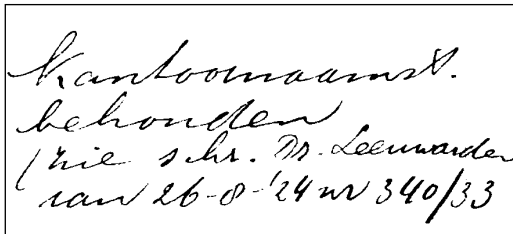 Kantoornaamst.
behouden
(zie schr. Dr. Leeuwarden
van 26-8-'24 nr 340/33